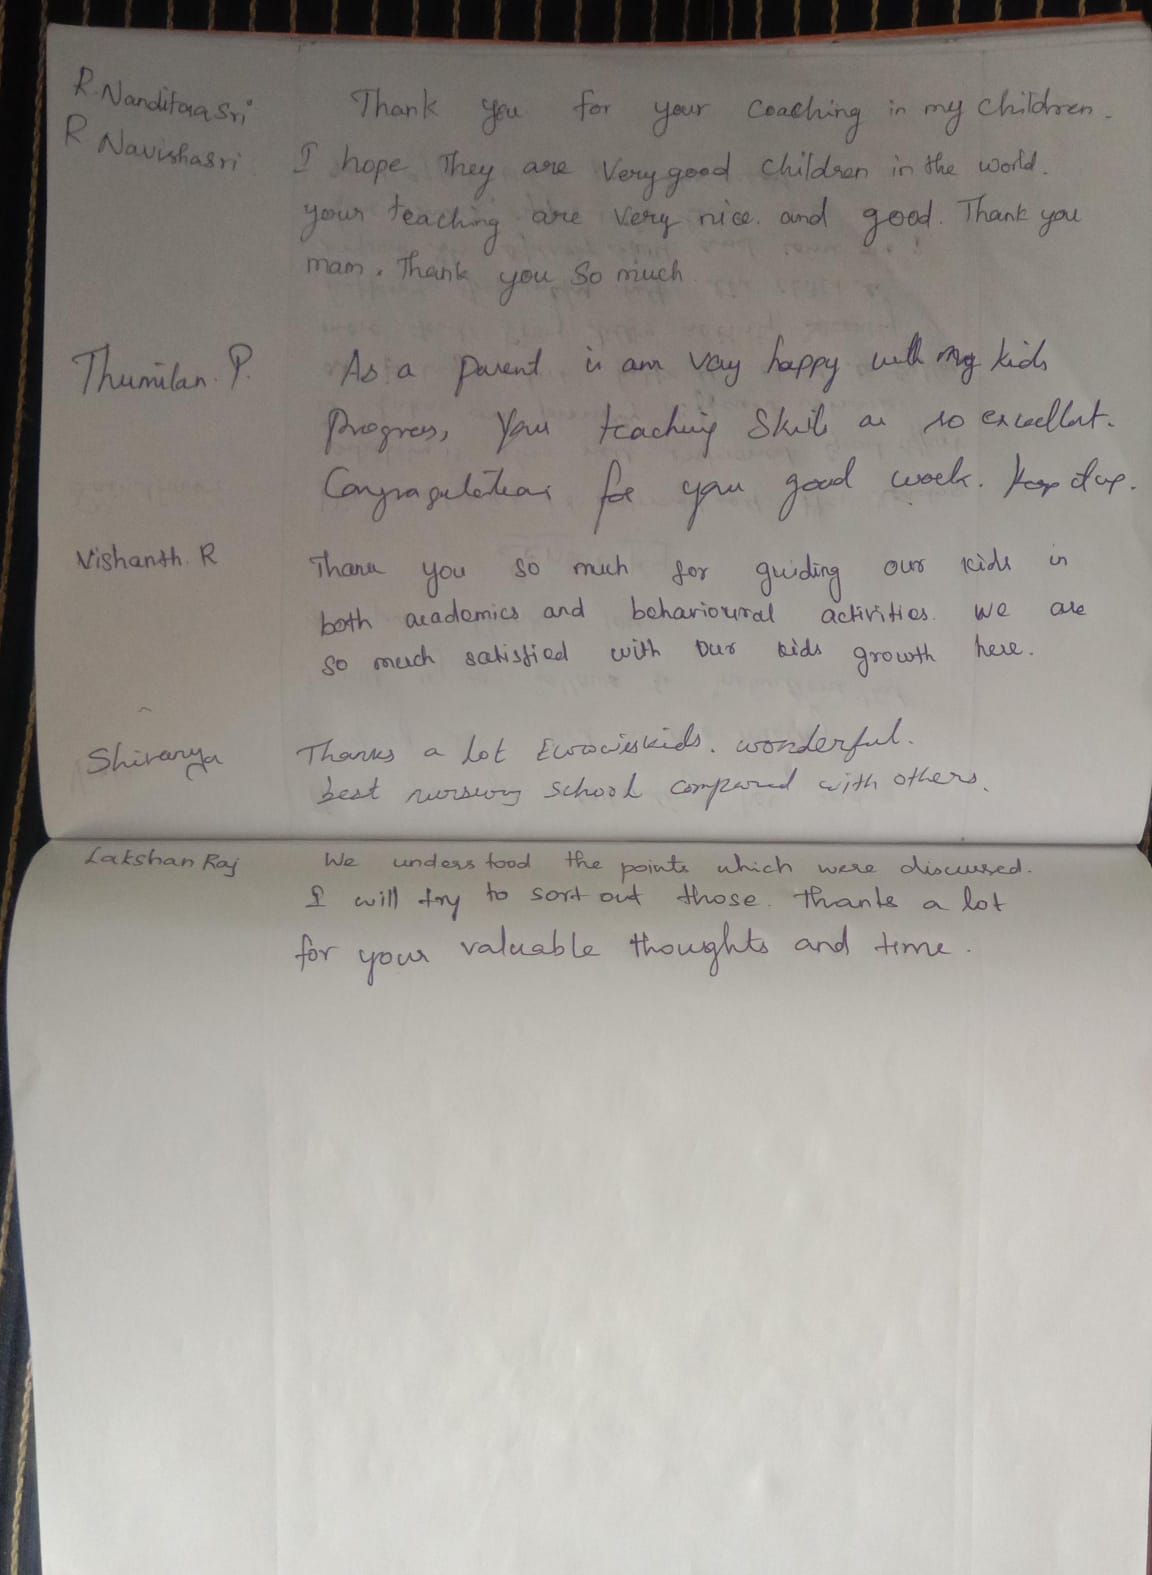 R. Nanditaa Sri Thank you for your coaching in my children.
R Navishasri I hope They are Very good children in the world.
your teaching are very nice. and good. Thank you
mam. Thank you so much
Thumilan. P. As a parent is am vay happy with my kids
Progress, Your teaching Skils are so excellent.
Congragulations for your good work. Keep it up.
Nishanth. R Thank you so much for guiding our kids in
both academics and behavioural activities. We are
so much satisfied with our kids growth here.
Shivanya Thanks a lot kids. wonderful.
best nursury school compared with others.
Lakshan Raj We understood the points which were discussed.
I will try to sort out those. Thanks a lot
for your valuable thoughts and time.